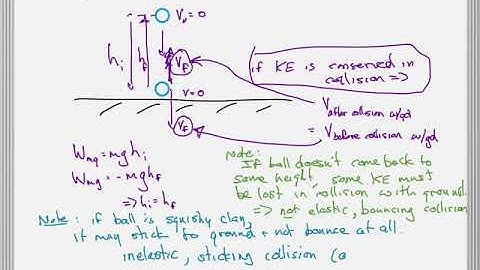 V₀ = 0
hᵢ
h_f
V_f
if KE is conserved in
collision =>
V = 0
V after collision w/gd
V_f
= V before collision w/gd
W_mg = mghᵢ
W_mg = -mgh_f
=> hᵢ = h_f
Note:
If ball doesn't come back to
same height, some KE must
be lost in collision with ground.
=> not elastic, bouncing collision
Note: if ball is squishy clay,
it may stick to ground + not bounce at all.
inelastic, sticking collision (